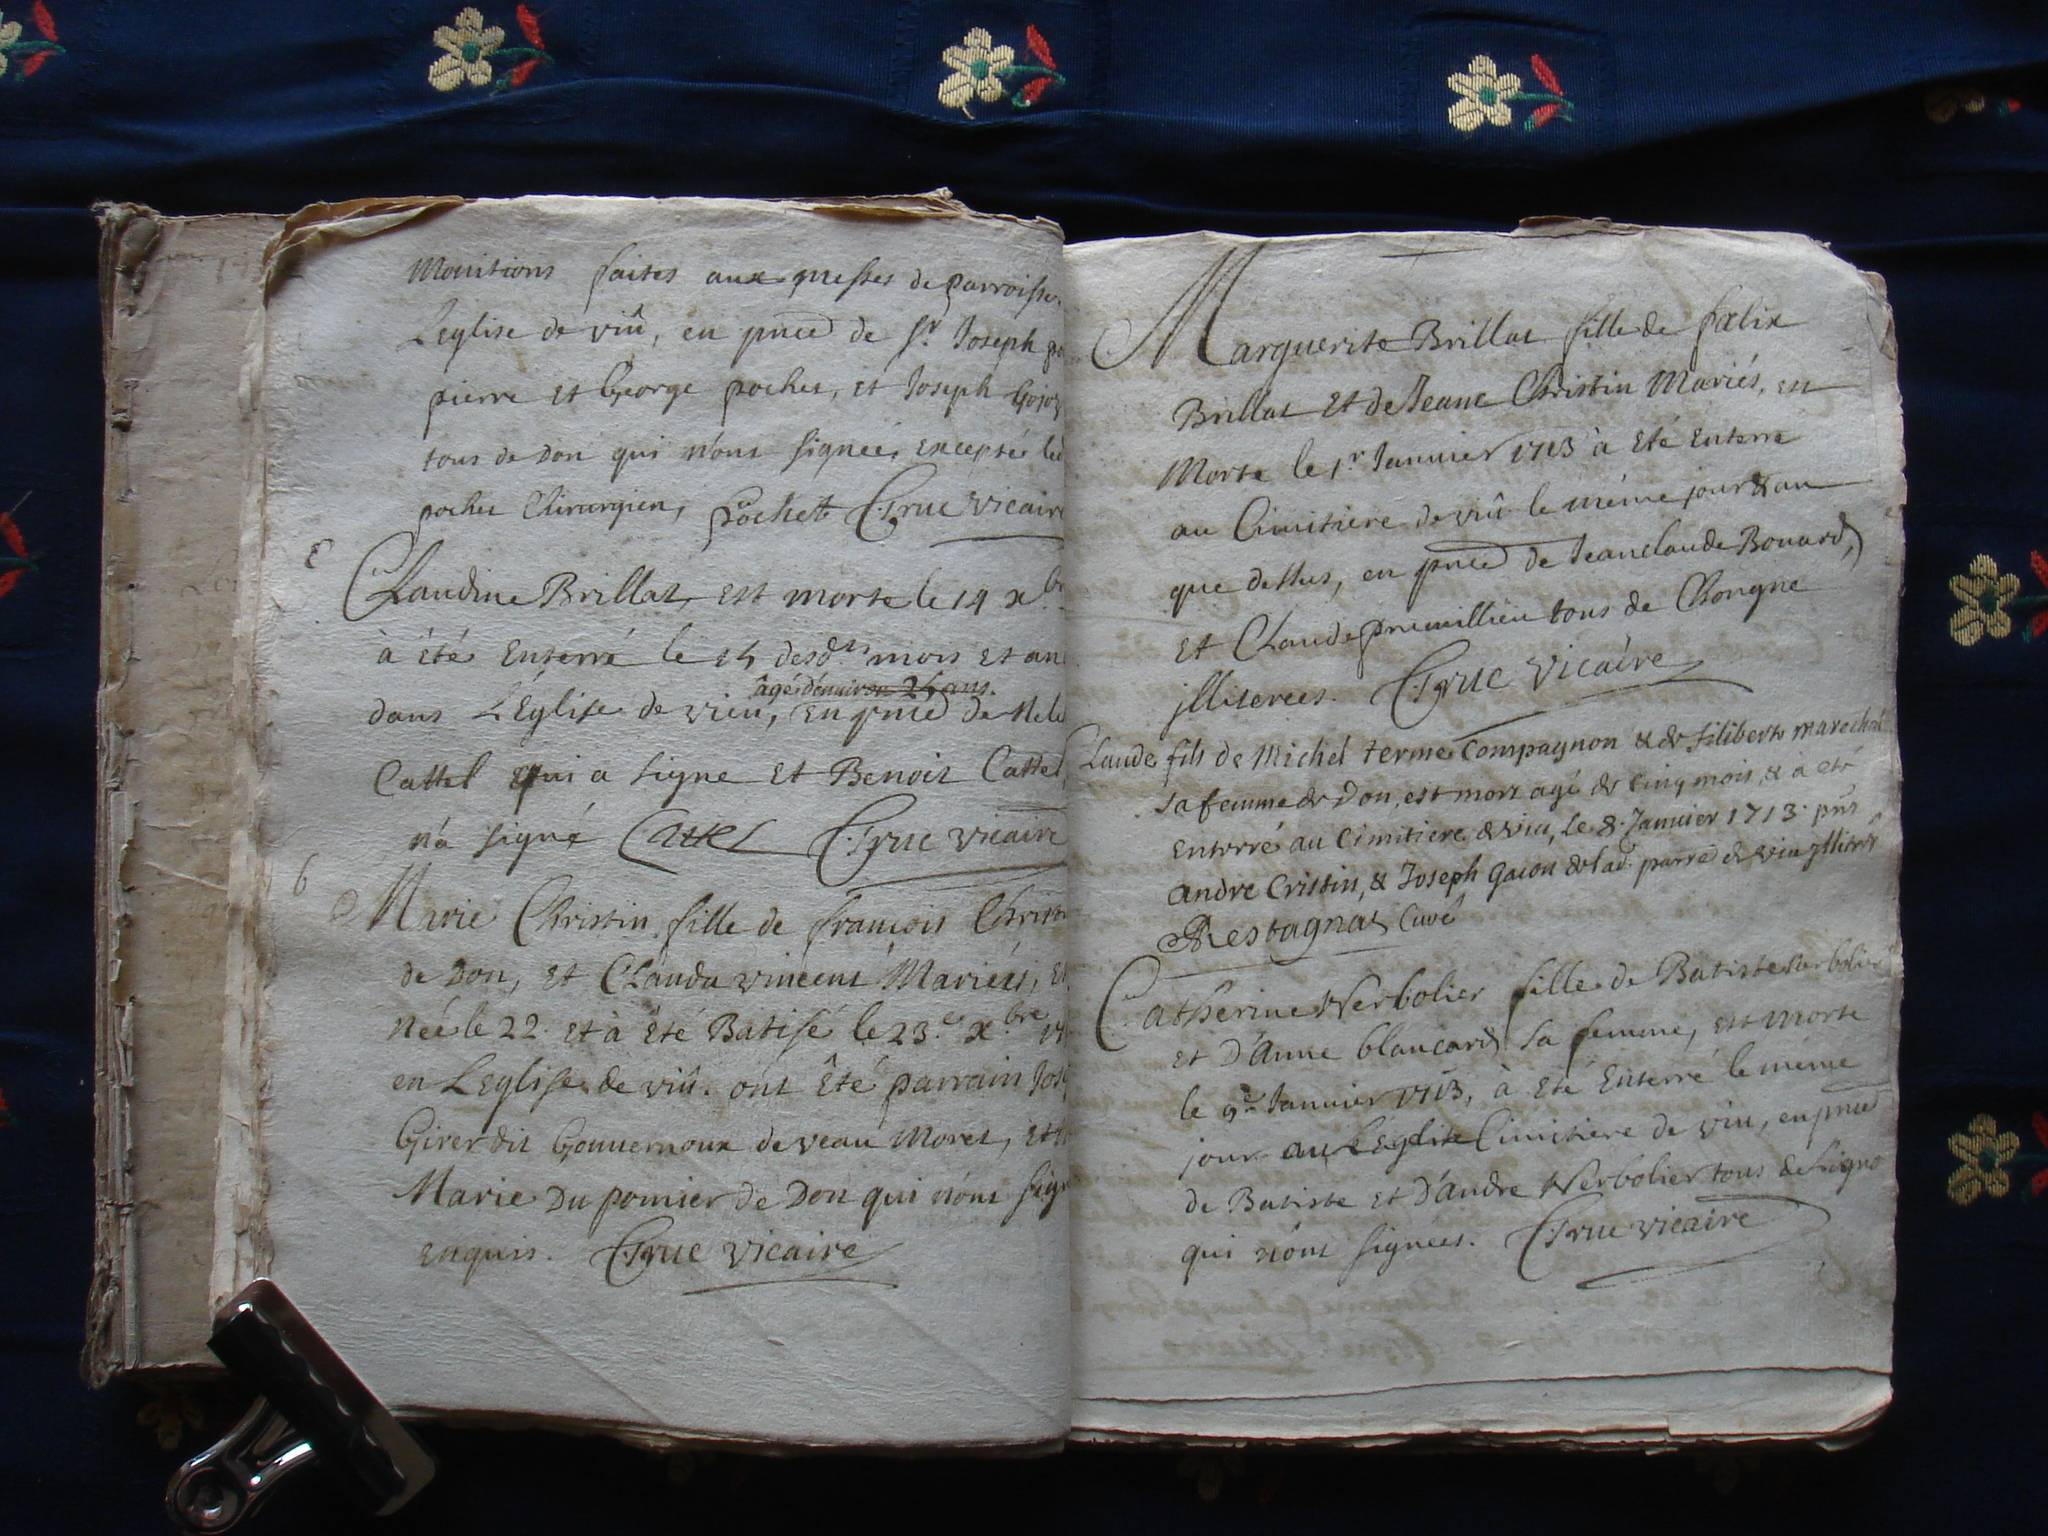 Monitions faites aux messes de parroisse
L'eglise de viû, en pnce de Sr. Joseph
pierre et George pochet, et Joseph Gojoz
tous de Don qui n'ont signeés excepté led
pochet Chirurgien, pochett C. Truc vicaire
Claudine Brillat, est morte le 14 xbr
à été Enterré le 15 desdts mois et an
âgé d'environ 25 ans.
dans L'Eglise de vieu, en pnce de
Cattel qui a signe et Benoit Cattel,
n'a signé Cattel C. Truc vicaire
6
Marie Christin fille de francois Christin
de Don, et Clauda vincent Mariés, Et
Néé le 22. et à été Batisé le 23e. xbre 17
en L'eglise de viû. ont Eté parrain Jose
Girerdit Gouvernoux de veau Moret, et
Marie Du pomier de Don qui n'ont sign
enquis. C. Truc vicaire
Marguerite Brillat fille de falix
Brillat et de Jeane Christin Mariés, est
Morte le 1r. Janvier 1713 à Eté Enterré
au Cimitiere de viû le méme jour & an
que dessus, en pnce de Jeanclaude Bouard,
et Claude prumillieu tous de Chongne
jlliterees. C. Truc vicaire
Claude fils de Michel terme Compagnon & de filiberte marechal
sa femme de Don, est mort agé de cinq mois, & a eté
enterré au Cimitiere de viu, le 8. Janvier 1713. pnts
andre Cristin, & Joseph gaion de lad. parre de viu jllitrés
Restagnat Curé
Catherine Nerbolier fille de Batiste Nerbolier
et D'Anne blancard sa femme, est morte
le 9e Janvier 1713, à Eté Enterré le méme
jour au L'Eglise Cimitiere de viu, en pnce
de Batiste et D'andre Nerbolier tous de Ligno
qui n'ont signées. C. Truc vicaire